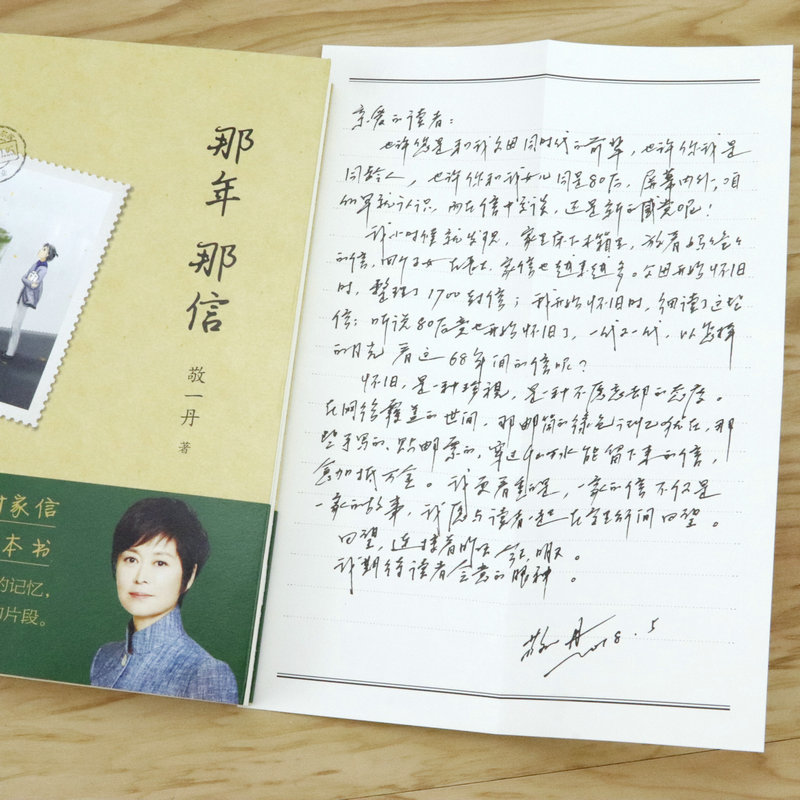 那年 那信
敬一丹 著
封家信
本书
的记忆,
片段。
亲爱的读者:
也许您是和我父母同时代的前辈,也许你我是
同龄人,也许你和我女儿同是80后,屏幕内外,咱
们早就认识,而在信中交谈,还是新的感觉呢!
我小时候就发现,家里床下木箱里,放着妈妈爸爸
的信,四个子女长大,家信也越来越多。父母开始怀旧
时,整理了1700封信;我开始怀旧时,细读了这些
信;听说80后竟也开始怀旧了,一代又一代,以怎样
的目光看这68年间的信呢?
怀旧,是一种珍视,是一种不愿忘却的态度。
在网络覆盖的世间,那邮筒的绿色记忆犹在,那
些手写的、贴邮票的、穿过千山万水能留下来的信,
愈加抵万金。我更看重的是,一家的信不仅是
一家的故事,我愿与读者一起在字里行间回望。
回望,连接着昨天今天明天。
我期待读者会意的眼神。
敬一丹 2018.5